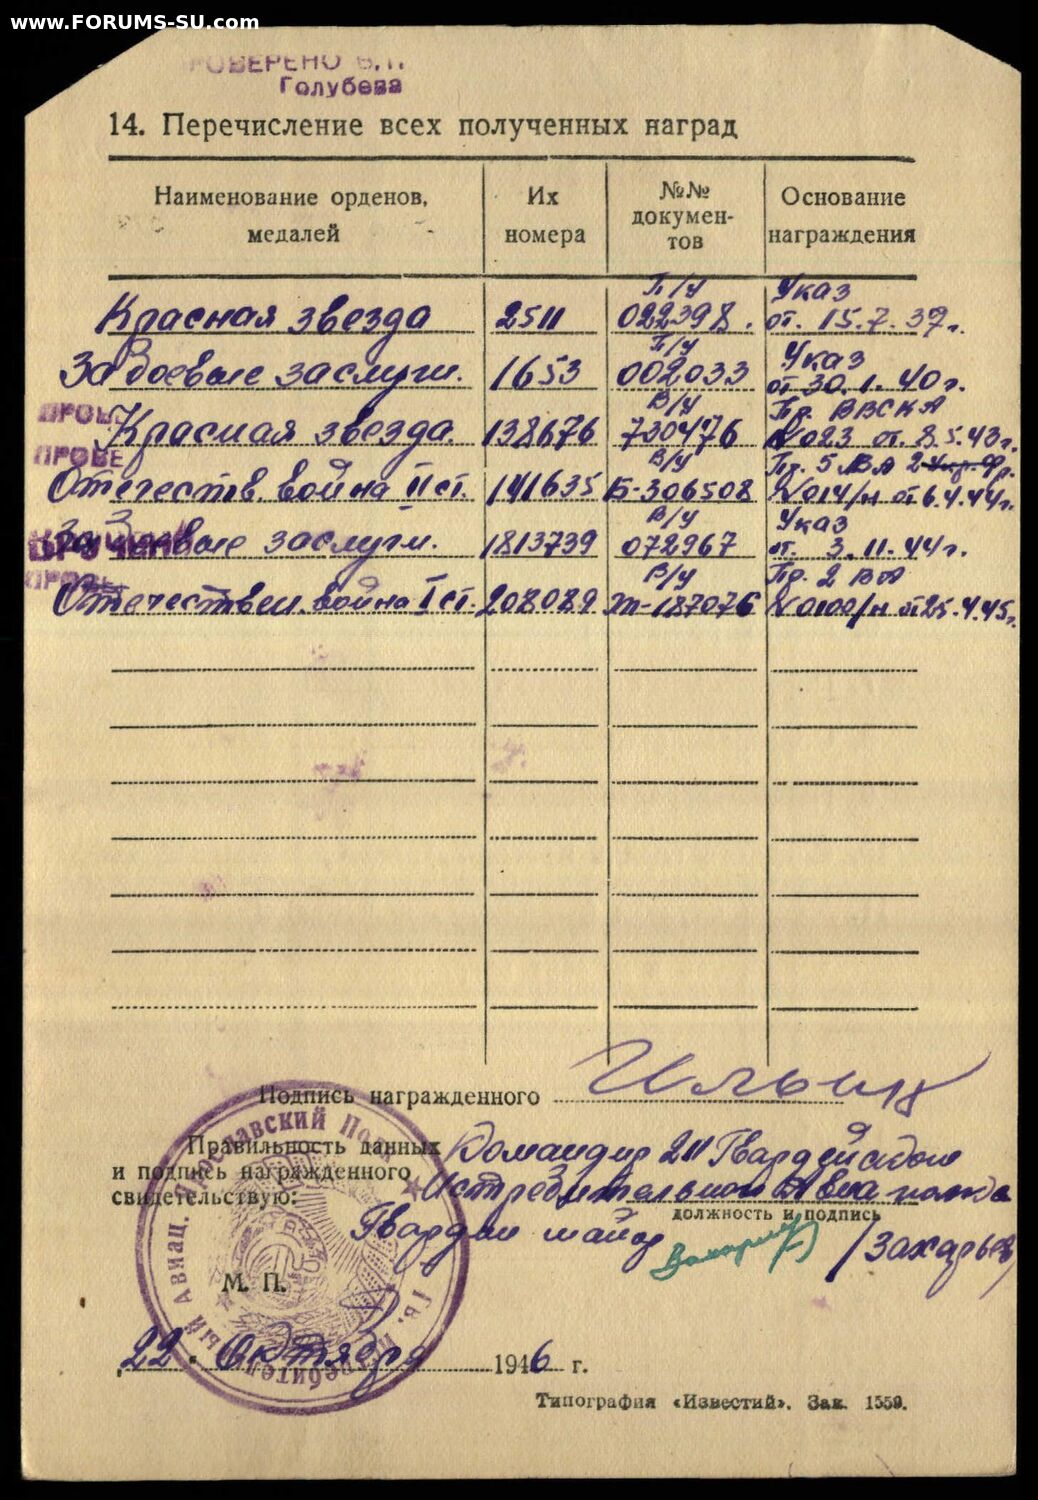 www.FORUMS-SU.com
Голубева
14. Перечисление всех полученных наград
Наименование орденов, медалей
Их номера
№№ докумен-тов
Основание награждения
Красная звезда 2511 П/у 022398. Указ от. 15.7.37г.
За боевые заслуги. 1653 П/у 002033 Указ от 30.1.40г.
Красная звезда. 138676 В/у 730476 Пр. ВВСКА №023 от. 8.5.43г.
Отечеств. война II ст. 141635 В/у Б-306508 Пр. 5 ВА 2 Укр. Фр. №014/н от 6.4.44г.
За боевые заслуги. 1813739 В/у 072967 Указ от. 3.11.44г.
Отечествен. война I ст. 208089 В/у 187076 Пр. 2 ВА №0100/н от 25.4.45г.
ПРОВЕ
Подпись награжденного Ильин
Правильность данных
и подпись награжденного
свидетельствую:
Командир 211 Гвардейского
Истребительного Авиаполка
должность и подпись
Гвардии майор /Захарьев/
М. П.
22. Октября 1946 г.
Типография «Известий». Зак. 1559.